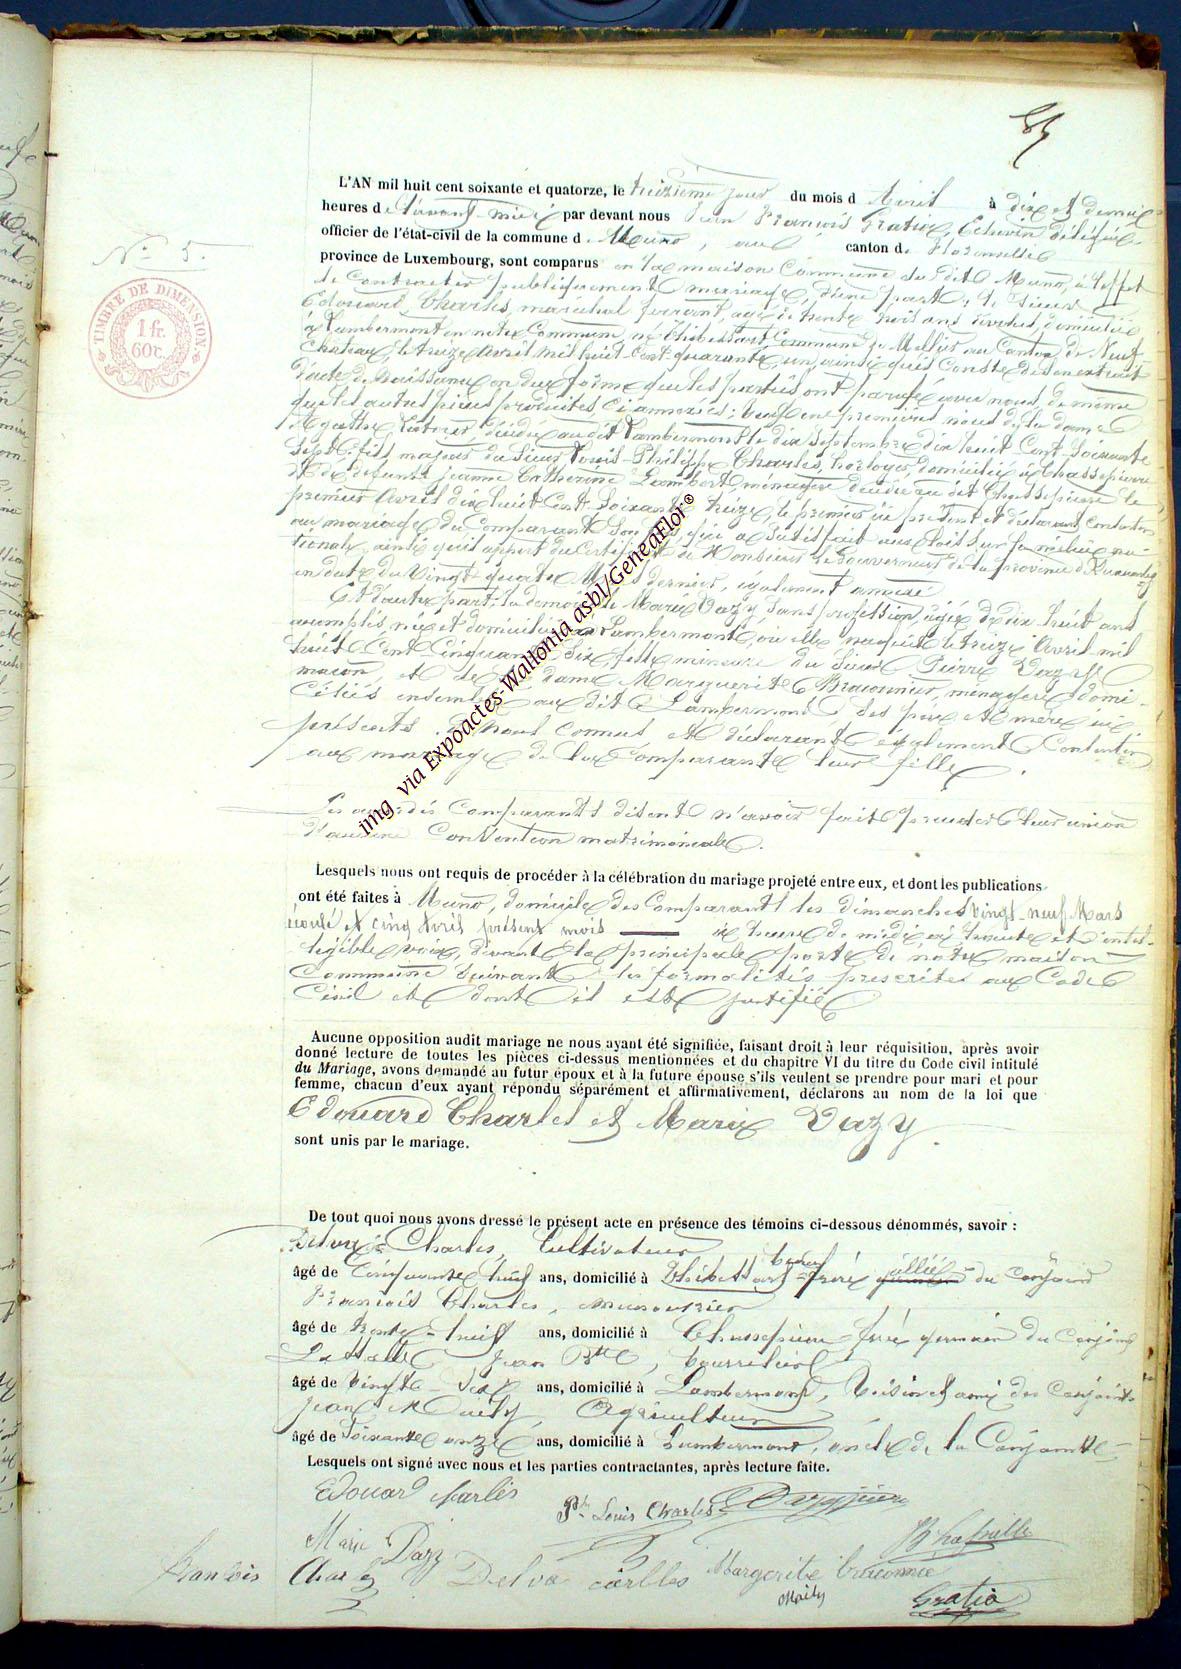 85
L'AN mil huit cent soixante et quatorze, le treizième jour du mois d'Avril à dix et demie
heures de avant-midi par devant nous Jean François Gratia, Echevin délégué
officier de l'état-civil de la commune de Muno, au canton de Florenville
province de Luxembourg, sont comparus en la maison Commune du dit Muno, à l'effet
N° 5.
TIMBRE DE DIMENSION
1 fr.
60c.
de contracter publiquement mariage, d'une part, le sieur
Edouard Charles, maréchal ferrant, agé de trente trois ans révolus, domicilié
à Lambermont en notre Commune, né à Thibessart Commune de Mellier au Canton de Neuf-
Chateau, le treize Avril mil huit cent quarante un, ainsi qu'il Conste de son extrait
d'acte de Naissance en due forme que les parties ont parafé avec nous de même
que les autres pièces produites, ci annexées; veuf en premières noces de la dame
Agathe décédée au dit Lambermont le dix Septembre dix huit Cent Soixante
Sept, fils majeur du Sieur Louis-Philippe Charles, horloger, domicilié à Chassepierre
et de défunte Jeanne Catherine Lambert ménagère décédée au dit Chassepierre le
premier Avril dix huit Cent Soixante treize, le premier ici présent et déclarant consentir
au mariage du Comparant Son fils, qui a Satisfait aux lois sur la milice na-
tionale ainsi qu'il appert du Certificat de Monsieur le Gouverneur de la province de Luxembourg
en date du Vingt quatre Mars dernier, également annexé
Et d'autre part, la demoiselle Marie Dazy, sans profession, agée de dix huit ans
accomplis, née et domiciliée à Lambermont, où elle naquit le treize Avril mil
huit Cent Cinquante Six, fille mineure du Sieur Pierre Dazy
maçon, et de dame Marguerite Braconnier, ménagère, domi-
ciliés ensemble au dit Lambermont, ses père et mère ici
présents à nous connus et déclarant également Consentir
au mariage de la Comparante leur fille.
Les comparants disent n'avoir fait précéder leur union
d'aucune Convention matrimoniale.
Lesquels nous ont requis de procéder à la célébration du mariage projeté entre eux, et dont les publications
ont été faites à Muno, domicile des Comparants les dimanches vingt neuf Mars
écoulé et cinq Avril présent mois à heure de midi, à haute et intel-
ligible voix, devant la principale porte de notre maison
Commune Suivant les formalités prescrites au Code
Civil et dont il est justifié
Aucune opposition audit mariage ne nous ayant été signifiée, faisant droit à leur réquisition, après avoir
donné lecture de toutes les pièces ci-dessus mentionnées et du chapitre VI du titre du Code civil intitulé
du Mariage, avons demandé au futur époux et à la future épouse s'ils veulent se prendre pour mari et pour
femme, chacun d'eux ayant répondu séparément et affirmativement, déclarons au nom de la loi que
Edouard Charles et Marie Dazy
sont unis par le mariage.
De tout quoi nous avons dressé le présent acte en présence des témoins ci-dessous dénommés, savoir :
Delvaux Charles, Cultivateur
âgé de Cinquante neuf ans, domicilié à Thibessart beau-frère allié du Conjoint
François Charles, menuisier
âgé de trente-huit ans, domicilié à Chassepierre frère germain du Conjoint
Lahalle Jean Bte, bourrelier
âgé de Vingt-Six ans, domicilié à Lambermont, Voisin et ami des Conjoints
Jean Mailly, Agriculteur
âgé de Soixante onze ans, domicilié à Lambermont, oncle de la Conjointe
Lesquels ont signé avec nous et les parties contractantes, après lecture faite.
Edouard Charles
Ph. Louis Charles
Marie Dazy
François Charles
Margerite braconnie
Mailly
Gratia
img via Expoactes-Wallonia asbl/GeneaFlor®